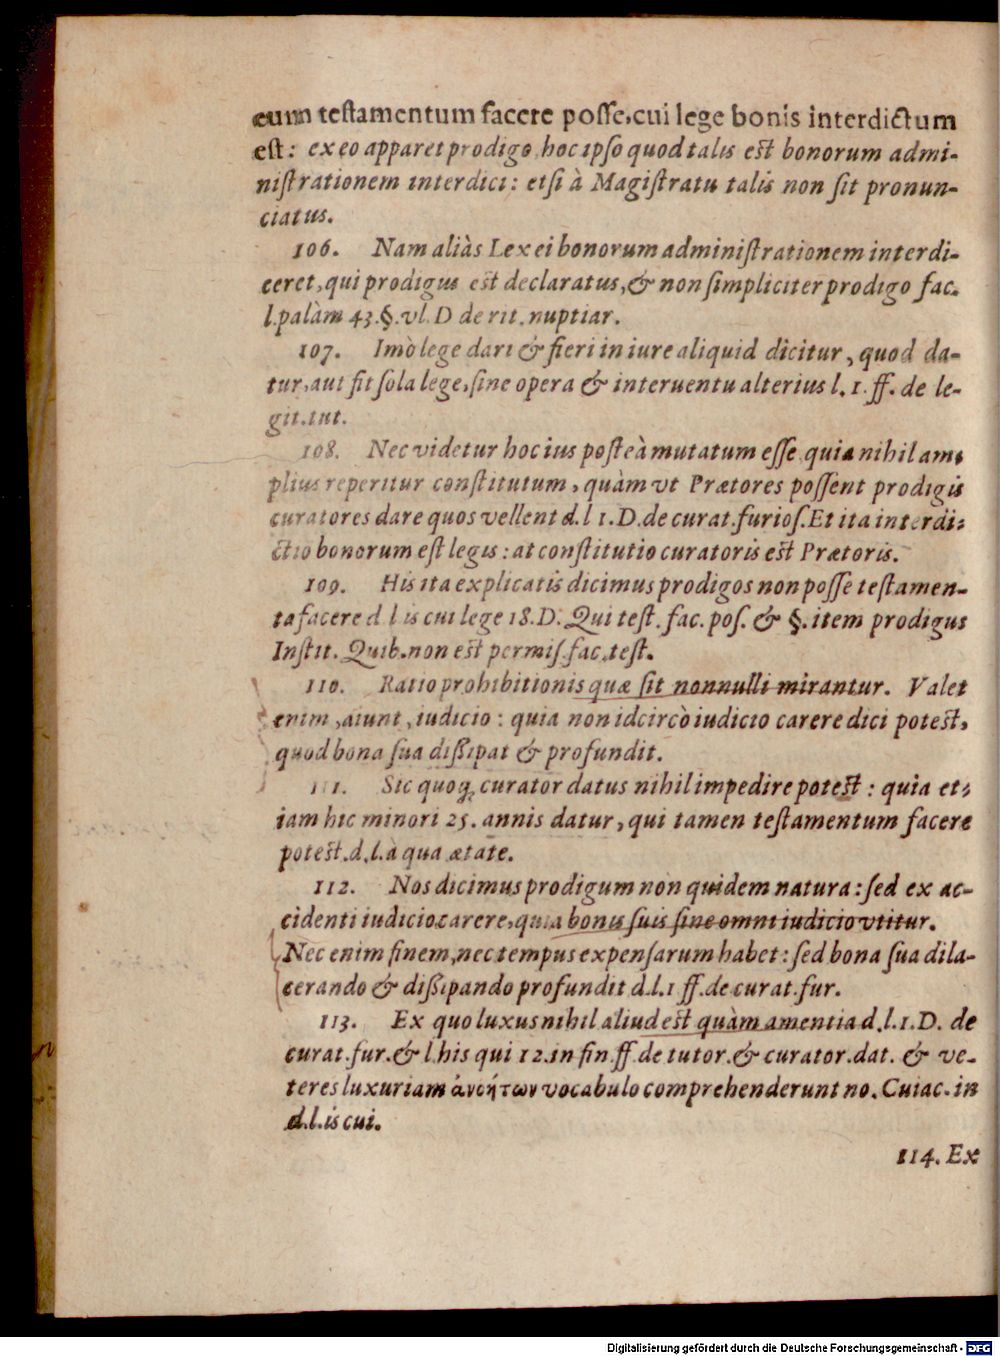 eum teſtamentum facere poſſe, cui lege bonis interdictum
eſt: ex eo apparet prodigo hoc ipſo quod talis eſt bonorum admi-
niſtrationem interdici: etſi à Magiſtratu talis non ſit pronun-
ciatus.
106. Nam aliàs Lex ei bonorum adminiſtrationem interdi-
ceret, qui prodigus eſt declaratus, & non ſimpliciter prodigo fac.
l. palàm 43. §. vl. D de rit. nuptiar.
107. Imò lege dari & fieri in iure aliquid dicitur, quod da-
tur, aut fit ſola lege, ſine opera & interuentu alterius l. 1. ff. de le-
git. tut.
108. Nec videtur hoc ius poſteà mutatum eſſe quia nihil am-
plius reperitur conſtitutum, quàm vt Prætores poſſent prodigis
curatores dare quos vellent d. l 1. D. de curat. furioſ. Et ita interdi-
ctio bonorum eſt legis: at conſtitutio curatoris eſt Prætoris.
109. His ita explicatis dicimus prodigos non poſſe teſtamen-
ta facere d l is cui lege 18. D. Qui teſt. fac. poſ. & §. item prodigus
Inſtit. Quib. non eſt permiſ. fac. teſt.
110. Ratio prohibitionis quæ ſit nonnulli mirantur. Valet
enim, aiunt, iudicio: quia non idcircò iudicio carere dici poteſt,
quod bona ſua diſſipat & profundit.
111. Sic quoq; curator datus nihil impedire poteſt: quia et-
iam hic minori 25. annis datur, qui tamen teſtamentum facere
poteſt. d. l. à qua ætate.
112. Nos dicimus prodigum non quidem natura: ſed ex ac-
cidenti iudicio carere, quia bonis ſuis ſine omni iudicio vtitur.
Nec enim finem, nec tempus expenſarum habet: ſed bona ſua dila-
cerando & diſſipando profundit d. l. 1 ff. de curat. fur.
113. Ex quo luxus nihil aliud eſt quàm amentia d. l. 1. D. de
curat. fur. & l. his qui 12. in fin. ff. de tutor. & curator. dat. & ve-
teres luxuriam ἀνοήτων vocabulo comprehenderunt no. Cuiac. in
d. l. is cui.
114. Ex
Digitalisierung gefördert durch die Deutsche Forschungsgemeinschaft - DFG